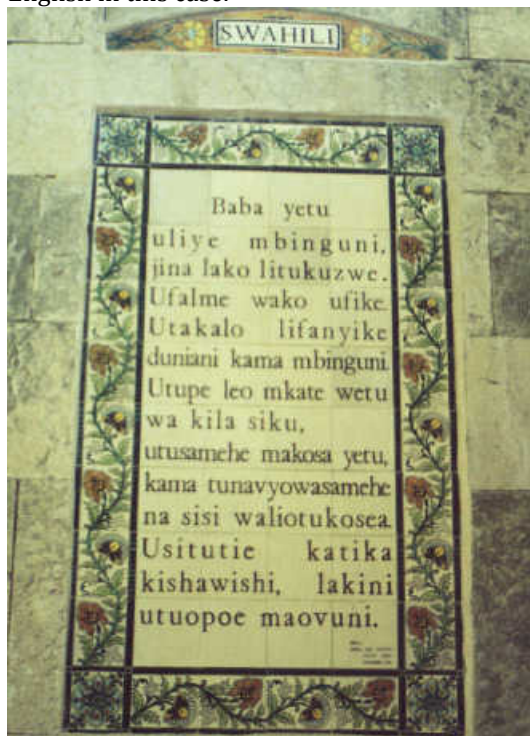 English in this case.
SWAHILI
Baba yetu
uliye mbinguni,
jina lako litukuzwe.
Ufalme wako ufike.
Utakalo lifanyike
duniani kama mbinguni.
Utupe leo mkate wetu
wa kila siku,
utusamehe makosa yetu,
kama tunavyowasamehe
na sisi waliotukosea.
Usitutie katika
kishawishi, lakini
utuopoe maovuni.